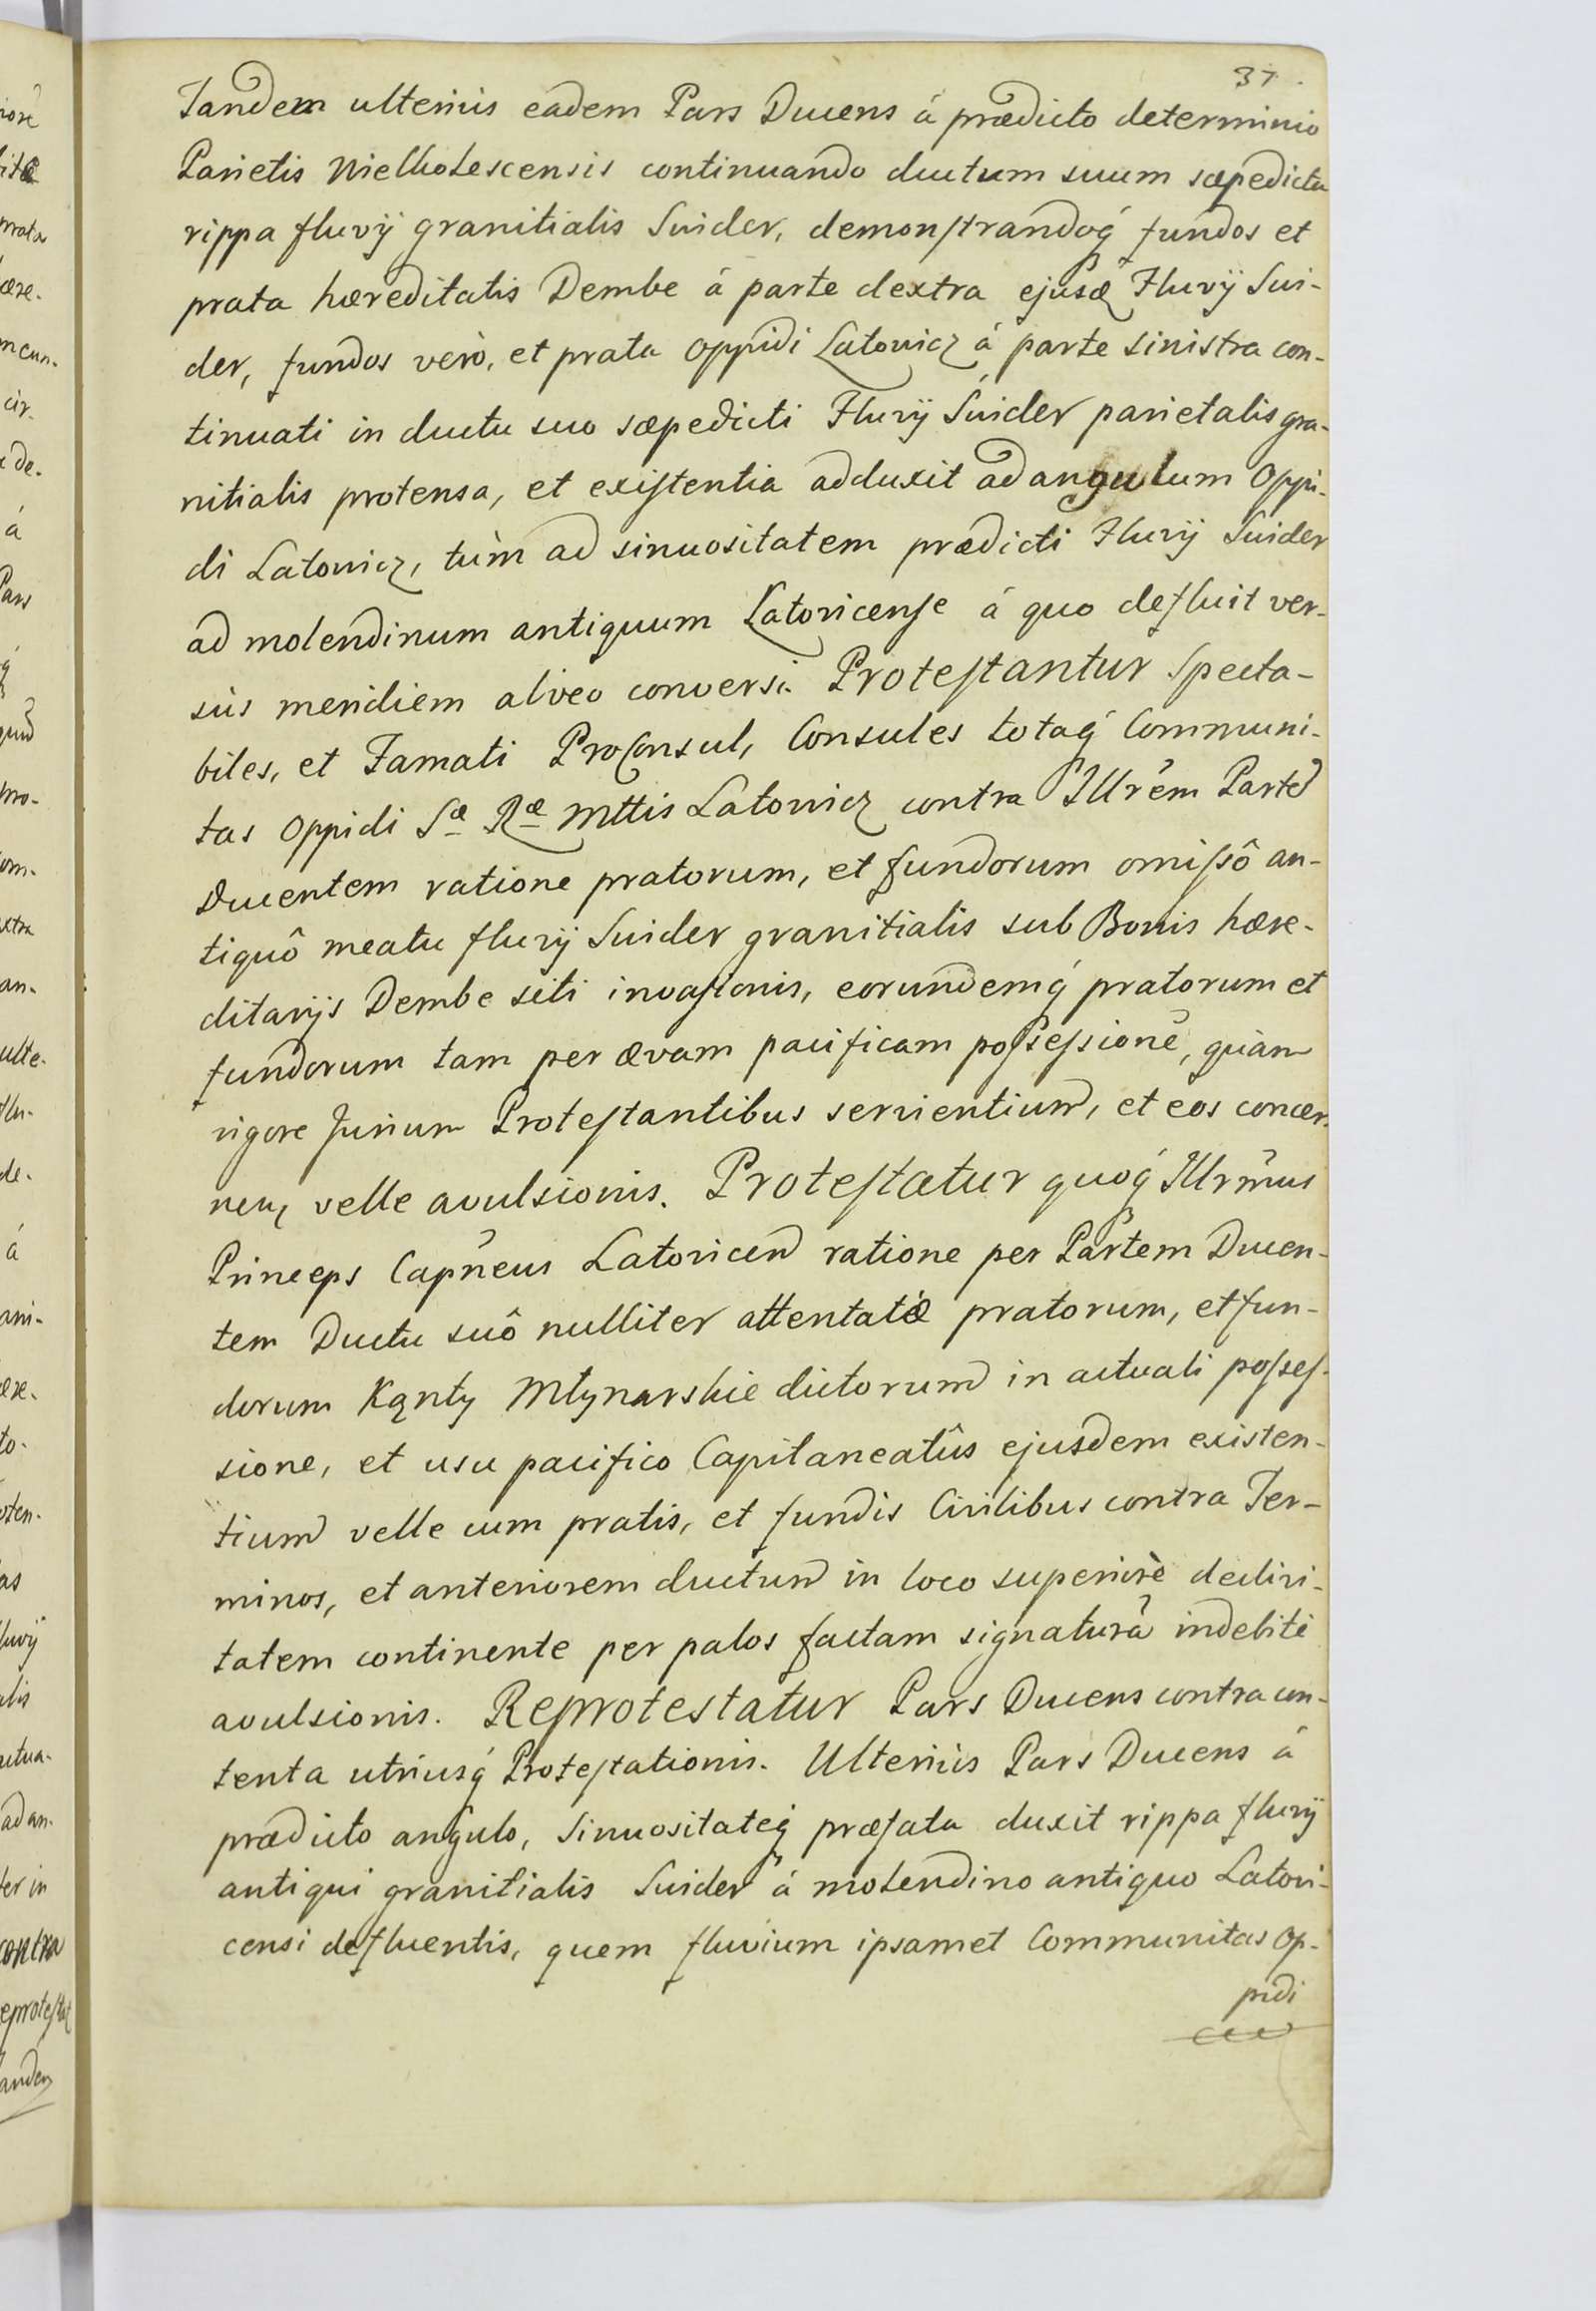 37.
Tandem ulteriùs eadem Pars Ducens á prædicto determinio
Parietis Wielholescensis continuando ductum suum sæpedicta
rippa fluvÿ granitialis Swider, demonstrandoq́ fundos et
prata hæreditatis Dembe á parte dextra ejusd Fluvÿ Swi-
der, fundos verò, et prata Oppidi Latowicz á parte sinistra con-
tinuati in ductu suo sæpedicti Fluvÿ Swider parietalis gra-
nitialis protensa, et existentia adduxit ad angulum Oppi-
di Latowicz, tùm ad sinuositatem prædicti Fluvÿ Swider
ad molendinum antiquum Latovicense á quo defluit ver-
sùs meridiem alveo conversi. Protestantur Specta-
biles, et Famati ProConsul, Consules totaq́ Communi-
tas Oppidi Sæ Ræ Mttis Latowicz contra Illrem Partem
Ducentem ratione pratorum, et fundorum omissô an-
tiquô meatu fluvÿ Swider granitialis sub Bonis hære-
ditarÿs Dembe siti invasionis, eorundemq́ pratorum et
fundorum tam per ævam pacificam possessionē, quàm
vigore Jurium Protestantibus servientium, et eos concer-
nen, velle avulsionis. Protestatur quoq́ Illrmus
Princeps Capneus Latovicen ratione per Partem Ducen-
tem Ductu suô nulliter attentatæ pratorum, et fun-
dorum Kąnty Młynarskie dictorum in actuali posses-
sione, et usu pacifico Capitaneatûs ejusdem existen-
tium velle cum pratis, et fundis Civilibus contra Ter-
minos, et anteriorem ductum in loco superiorè declivi-
tatem continente per palos factam signaturā indebitè
avulsionis. Reprotestatur Pars Ducens contra con-
tenta utriusq́ Protestationis. Ulteriùs Pars Ducens á
prædicto angulo, Sinuositateq́ præfata duxit rippa fluvÿ
antiqui granitialis Swider á molendino antiquo Latovi-
censi defluentis, quem fluvium ipsamet Communitas Op-
pidi